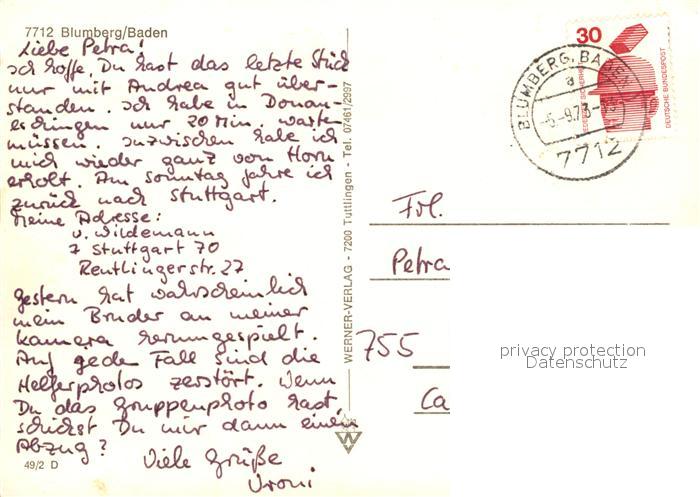 7712 Blumberg/Baden
Liebe Petra!
Ich hoffe, Du hast das letzte Stück
nur mit Andrea gut über-
standen. Ich habe in Donau-
eschingen nur 20 Min. warten
müssen. Inzwischen habe ich
mich wieder ganz vom Horn
erholt. Am Sonntag fahre ich
zurück nach Stuttgart.
Meine Adresse:
v. Wildemann
7 Stuttgart 70
Reutlingerstr. 27
Gestern hat wahrscheinlich
mein Bruder an meiner
Kamera herumgespielt.
Auf jeden Fall sind die
Helferphotos zerstört. Wenn
Du das Gruppenphoto hast,
schickst Du mir dann einen
Abzug?
Viele Grüße
Vroni
49/2 D
WERNER-VERLAG - 7200 Tuttlingen - Tel. 07461/2997
30
DEUTSCHE BUNDESPOST
BLUMBERG, BADEN
a
-5.-9.73-
7712
Frl.
Petra
755
Ca
privacy protection
Datenschutz